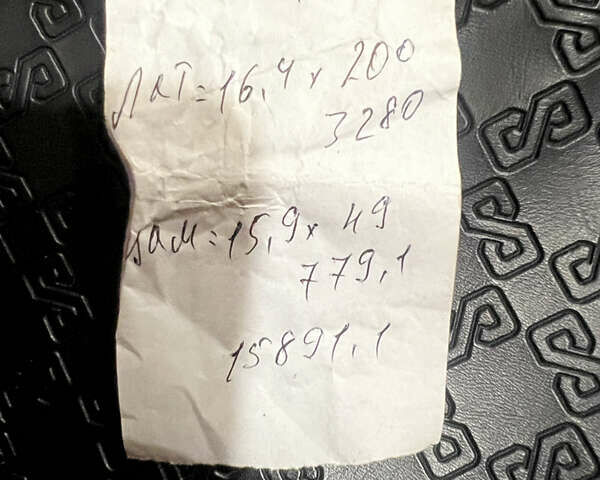 Лат = 16,4 x 200
3280
цам = 15,9 x 49
779,1
15891,1